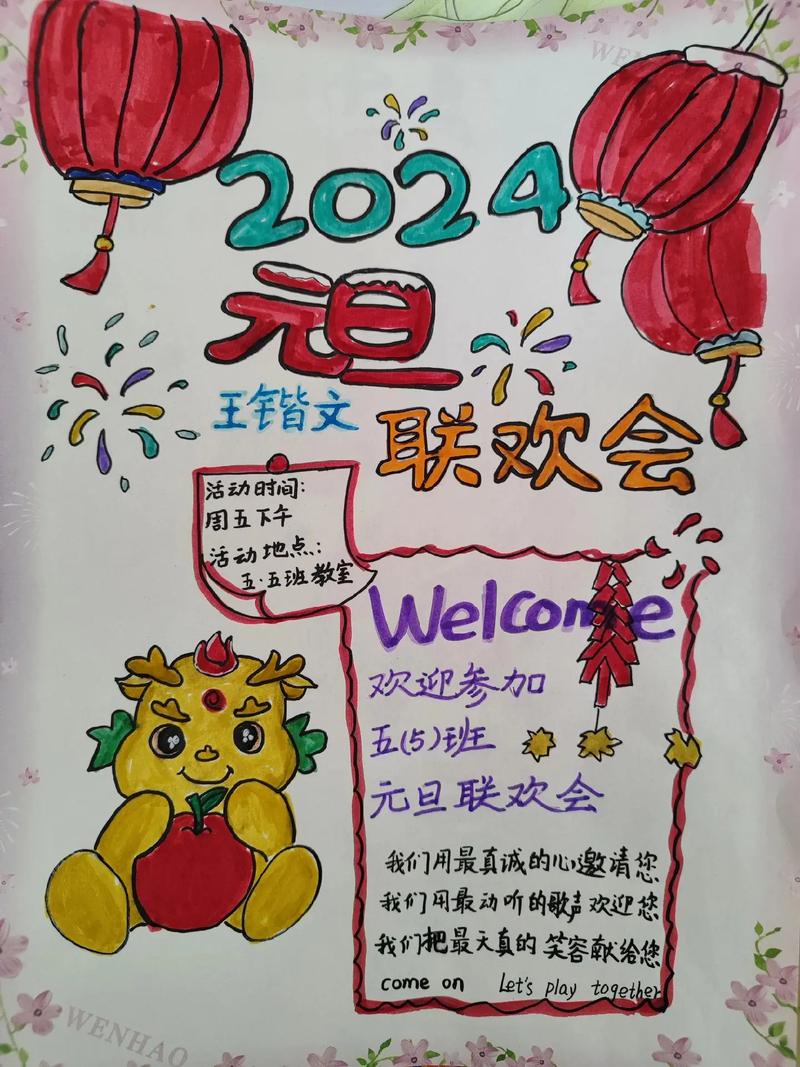 WENHAO
2024
元旦
王锴文
联欢会
活动时间:
周五下午
活动地点:
五·五班教室
Welcome
欢迎参加
五(5)班
元旦联欢会
我们用最真诚的心邀请您
我们用最动听的歌声欢迎您
我们把最天真的笑容献给您
come on Let's play together
WENHAO